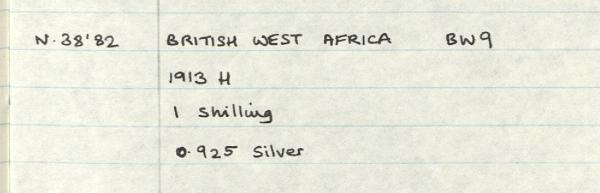 N.38'82 BRITISH WEST AFRICA BW9
1913 H
1 shilling
0.925 Silver